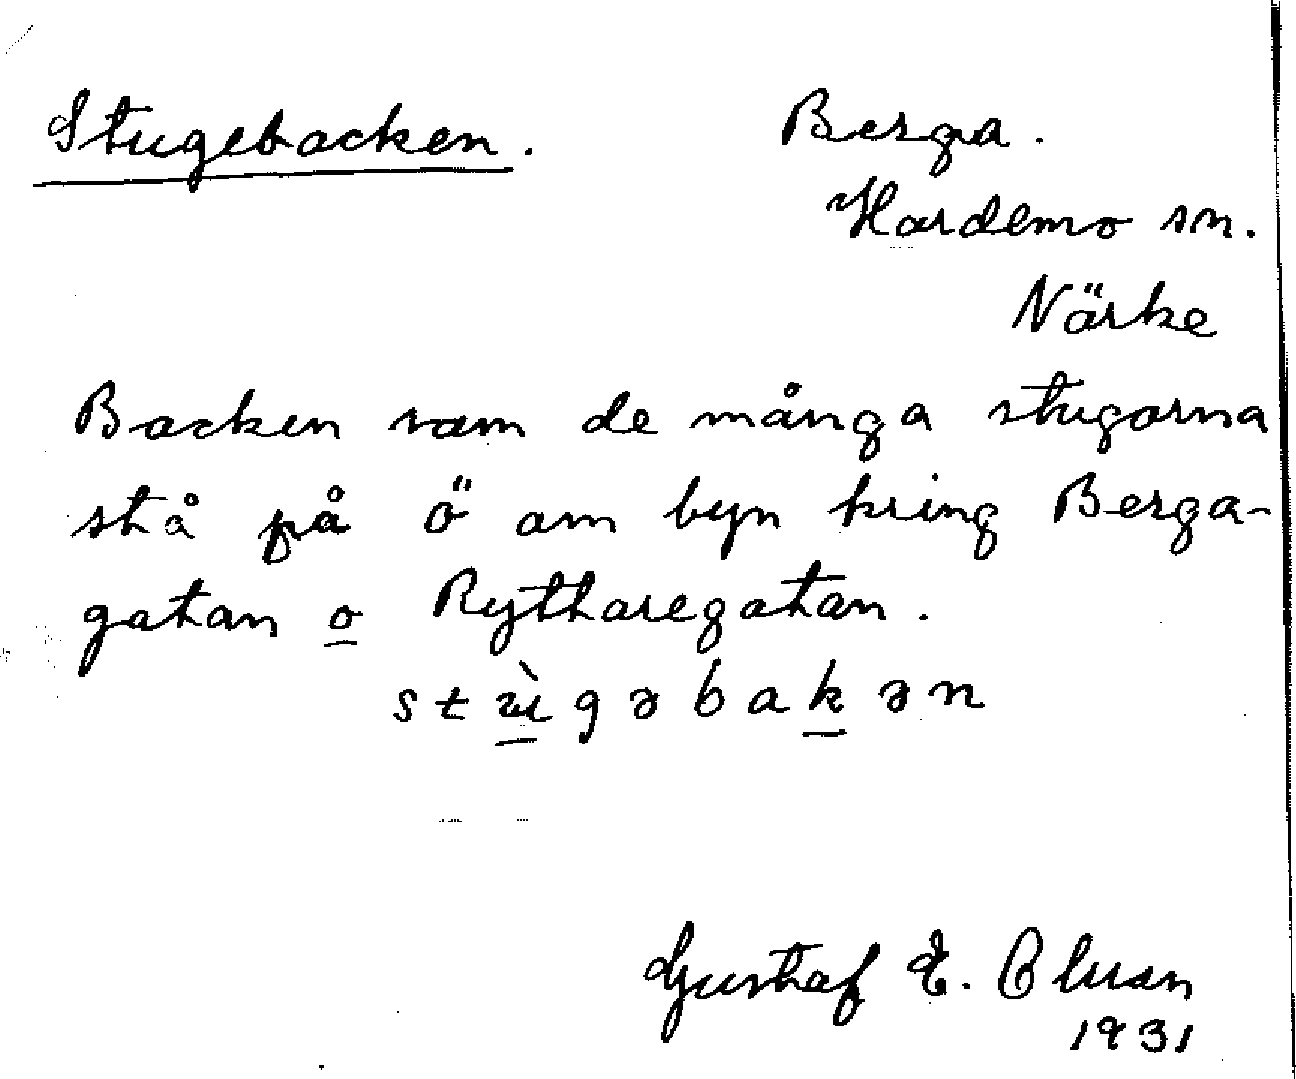 Stugebacken. Berga.
Hardemo sn.
Närke
Backen som de många stugorna
stå på ö om byn kring Berga-
gatan o Ryttaregatan.
stùgəbakən
Gustaf E.
1931